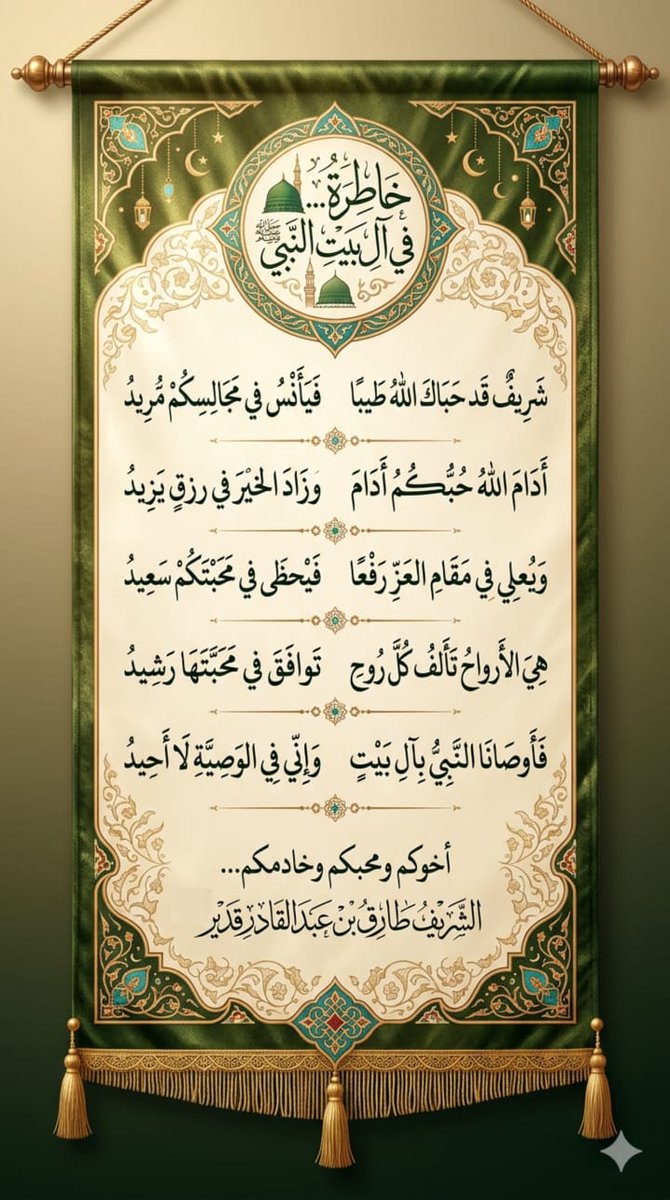 خَاطِرَةٌ...
في آلِ بَيْتِ النَّبِي ﷺ
شَرِيفٌ قَد حَبَاكَ اللهُ طَيبًا فَيَأْنَسُ في مَجَالِسِكُمْ مُّرِيدُ
أَدَامَ اللهُ حُبُّكُمُ أَدَامَ وَزَادَ الخَيْرَ في رزقٍ يَزِيدُ
وَيُعلِي فِي مَقَامِ العَزِّ رَفْعًا فَيْحظَى في مَحَبَتَكُمْ سَعِيدُ
هِيَ الأَرواحُ تَأَلَفُ كُلَّ رُوحٍ تَوافَقَ في مَحَبَّتَهَا رَشِيدُ
فَأَوصَانَا النَّبِيُّ بِآلِ بَيْتٍ وَإِنّي فِي الوَصِيَّةِ لَا أَحِيدُ
أخوكم ومحبكم وخادمكم...
الشَّرِيْفُ طَارِقُ بْنُ عَبدَالقَادِر قَدِيْر